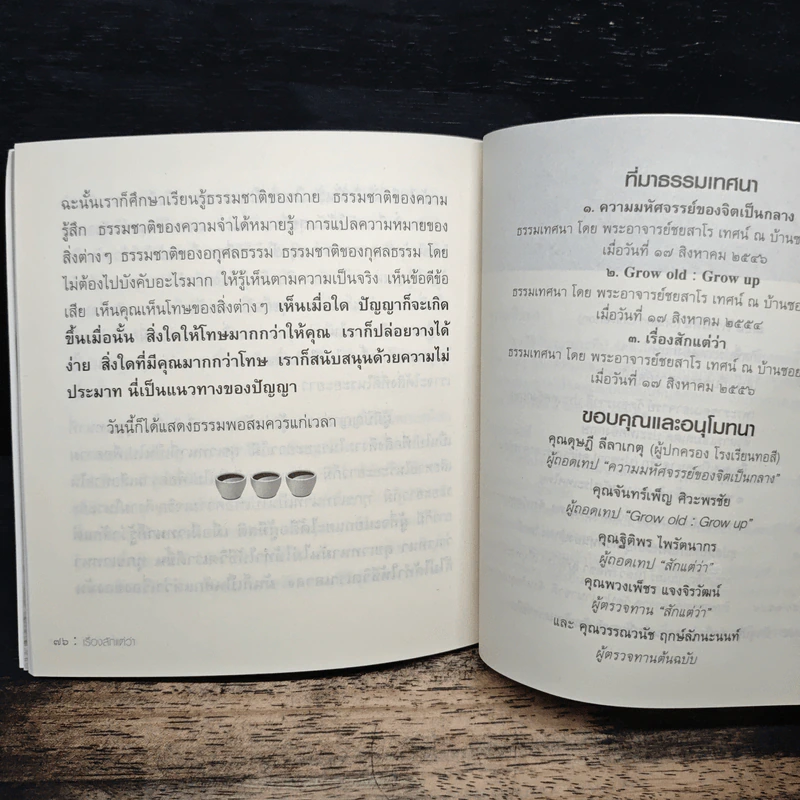 ฉะนั้นเราก็ศึกษาเรียนรู้ธรรมชาติของกาย ธรรมชาติของความ
รู้สึก ธรรมชาติของความจำได้หมายรู้ การแปลความหมายของ
สิ่งต่างๆ ธรรมชาติของอกุศลธรรม ธรรมชาติของกุศลธรรม โดย
ไม่ต้องไปบังคับอะไรมาก ให้รู้เห็นตามความเป็นจริง เห็นข้อดีข้อ
เสีย เห็นคุณเห็นโทษของสิ่งต่างๆ เห็นเมื่อใด ปัญญาก็จะเกิด
ขึ้นเมื่อนั้น สิ่งใดให้โทษมากกว่าให้คุณ เราก็ปล่อยวางได้
ง่าย สิ่งใดที่มีคุณมากกว่าโทษ เราก็สนับสนุนด้วยความไม่
ประมาท นี่เป็นแนวทางของปัญญา
วันนี้ก็ได้แสดงธรรมพอสมควรแก่เวลา
๗๖ : เรื่องสักแต่ว่า
ที่มาธรรมเทศนา
๑. ความมหัศจรรย์ของจิตเป็นกลาง
ธรรมเทศนา โดย พระอาจารย์ชยสาโร เทศน์ ณ บ้านซอย
เมื่อวันที่ ๑๗ สิงหาคม ๒๕๔๖
๒. Grow old : Grow up
ธรรมเทศนา โดย พระอาจารย์ชยสาโร เทศน์ ณ บ้านซอย
เมื่อวันที่ ๑๗ สิงหาคม ๒๕๕๔
๓. เรื่องสักแต่ว่า
ธรรมเทศนา โดย พระอาจารย์ชยสาโร เทศน์ ณ บ้านซอย
เมื่อวันที่ ๑๗ สิงหาคม ๒๕๕๖
ขอบคุณและอนุโมทนา
คุณดุษฎี ลีลาเกตุ (ผู้ปกครอง โรงเรียนทอสี)
ผู้ถอดเทป "ความมหัศจรรย์ของจิตเป็นกลาง"
คุณจันทร์เพ็ญ ศิวะพรชัย
ผู้ถอดเทป "Grow old : Grow up"
คุณฐิติพร ไพรัตนากร
ผู้ถอดเทป "สักแต่ว่า"
คุณพวงเพ็ชร แจงจิรวัฒน์
ผู้ตรวจทาน "สักแต่ว่า"
และ คุณวรรณวนัช ฤกษ์ลัภนะนนท์
ผู้ตรวจทานต้นฉบับ